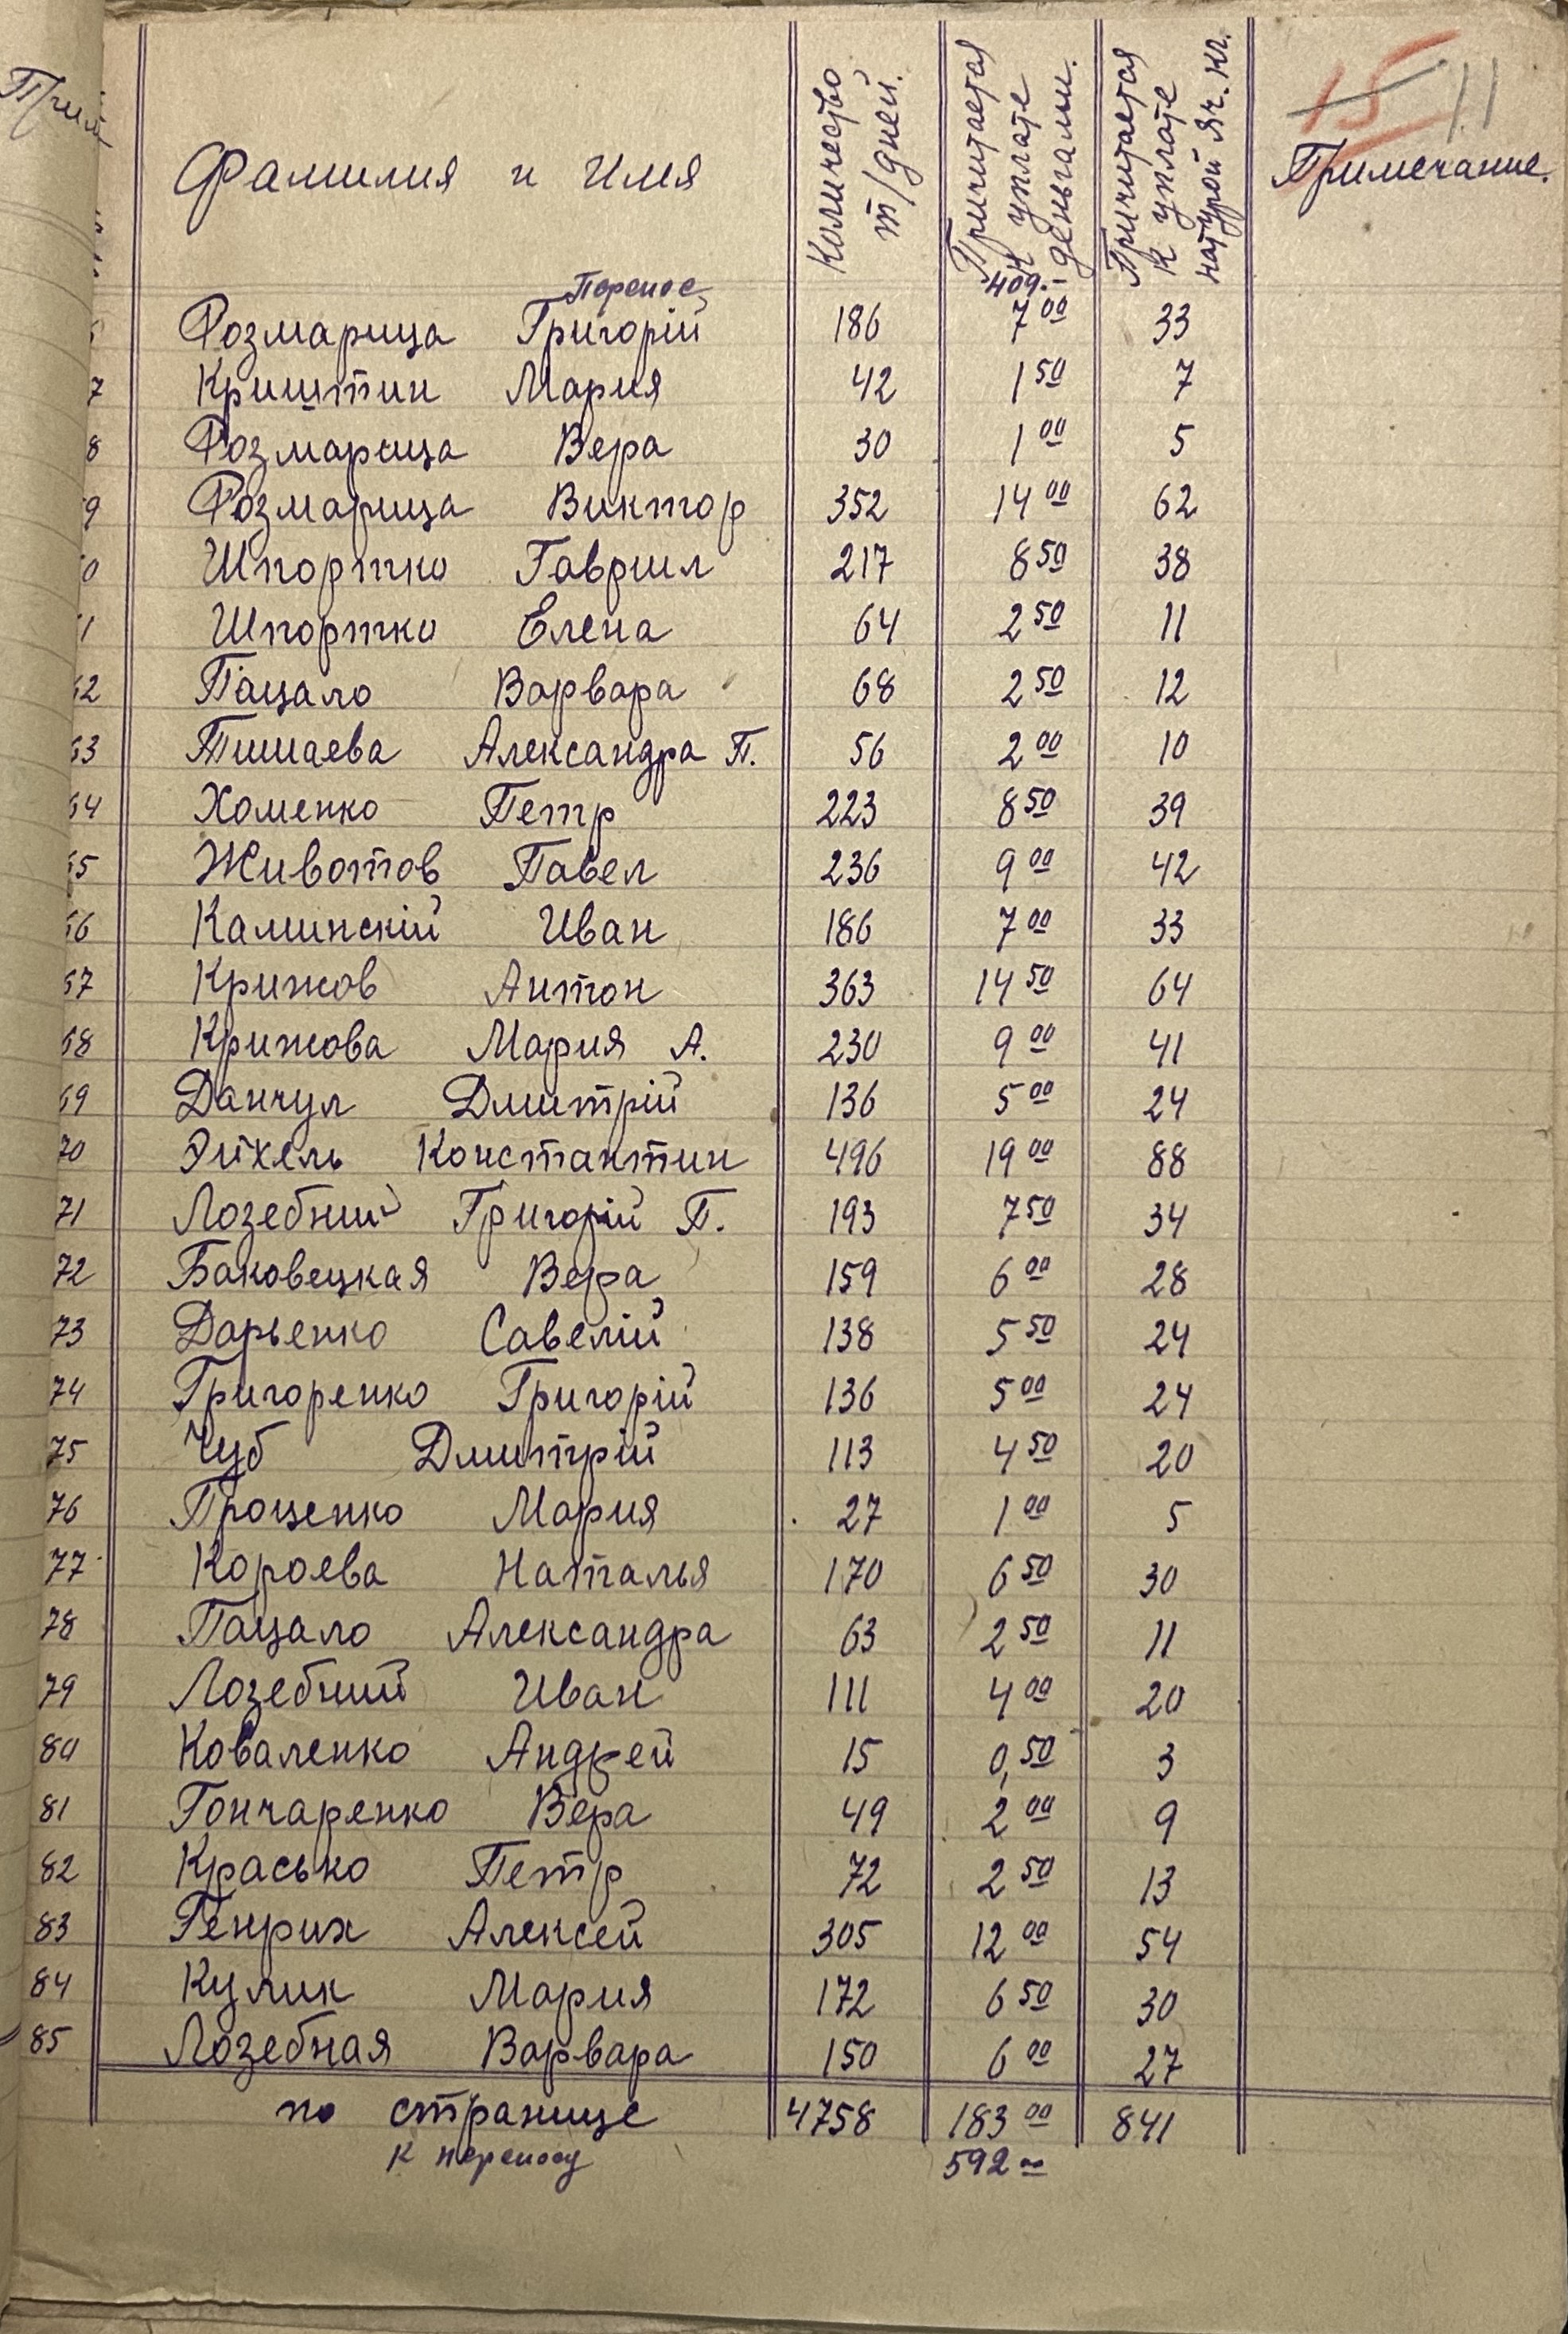 Прим
15 11
Фамилия и Имя Количество т/дней. Причитается к уплате деньгами. Причитается к уплате натурой яч. кг. Примечание.
Перенос 409.-
Розмарица Григорій 186 7 00 33
7 Криштин Мария 42 1 50 7
8 Розмарица Вера 30 1 00 5
9 Розмарица Виктор 352 14 00 62
0 Шпортко Гавриил 217 8 50 38
1 Шпортко Елена 64 2 50 11
62 Пацало Варвара 68 2 50 12
63 Тишаева Александра П. 56 2 00 10
64 Хоменко Петр 223 8 50 39
65 Животов Павел 236 9 00 42
66 Каминскій Иван 186 7 00 33
67 Крижов Антон 363 14 50 64
68 Крижова Мария А. 230 9 00 41
69 Данчул Дмитрій 136 5 00 24
70 Эйхель Константин 496 19 00 88
71 Лозебний Григорій П. 193 7 50 34
72 Баковецкая Вера 159 6 00 28
73 Дарьенко Савелій 138 5 50 24
74 Григоренко Григорій 136 5 00 24
75 Чуб Дмитрій 113 4 50 20
76 Проценко Мария 27 1 00 5
77 Короева Наталья 170 6 50 30
78 Пацало Александра 63 2 50 11
79 Лозебний Иван 111 4 00 20
80 Коваленко Андрей 15 0,50 3
81 Гончаренко Вера 49 2 00 9
82 Красько Петр 72 2 50 13
83 Генрих Алексей 305 12 00 54
84 Кулик Мария 172 6 50 30
85 Лозебная Варвара 150 6 00 27
по странице 4758 183 00 841
к переносу 592 =